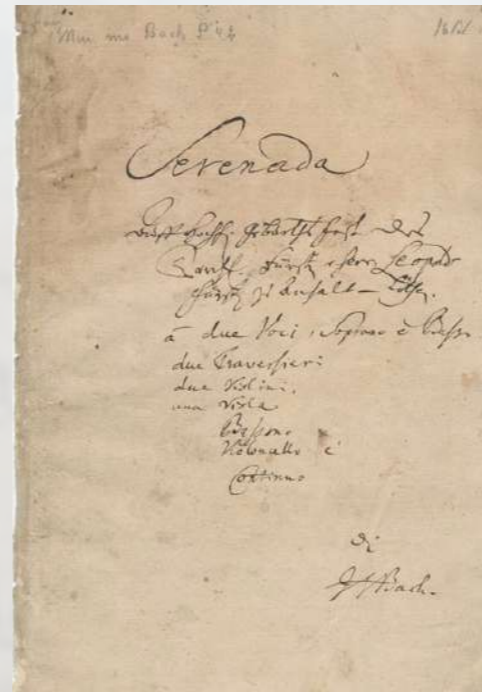 Mus. ms. Bach P 42
Serenada
Hochf. Geburths Fest des
Fürst Herrn Leopolds
Fürst zu Anhalt - Cöth.
à due Voci, Soprano è Basso
due Traversieri
due Violini,
una Viola
Bassono
Violoncello è
Continuo
di
J S Bach.